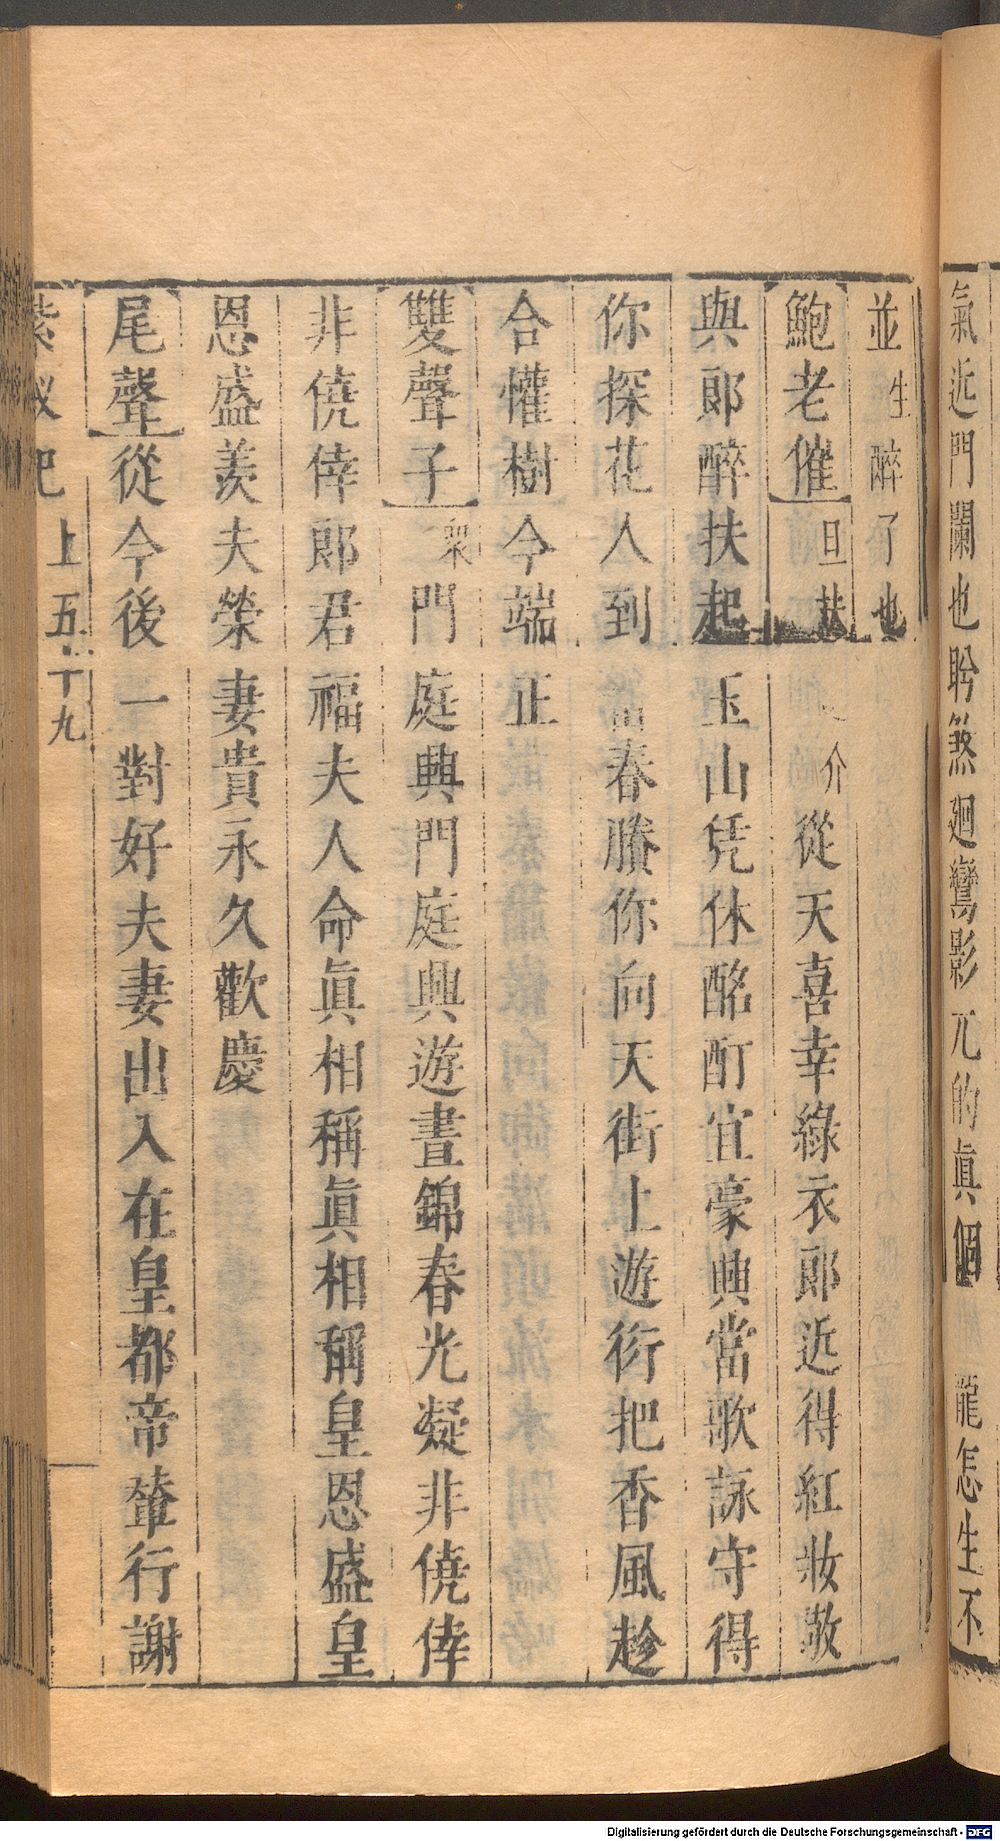 氣近門闌也盻煞廻鸞影兀的眞個 龍怎生不
並 生 醉了也
鮑老催 旦扶 介 從天喜幸綠衣郎近得紅妝敬
與郎醉扶起玉山凭休酩酊宜豪興當歌詠守得
你探花人到 春賸你向天街上遊衍把香風趁
合懽樹今端正
雙聲子 衆 門庭興門庭興遊晝錦春光凝非僥倖
非僥倖郎君福夫人命眞相稱眞相稱皇恩盛皇
恩盛羨夫榮妻貴永久歡慶
尾聲 從今後一對好夫妻出入在皇都帝輦行謝
紫釵記 上 五十九
Digitalisierung gefördert durch die Deutsche Forschungsgemeinschaft - DFG